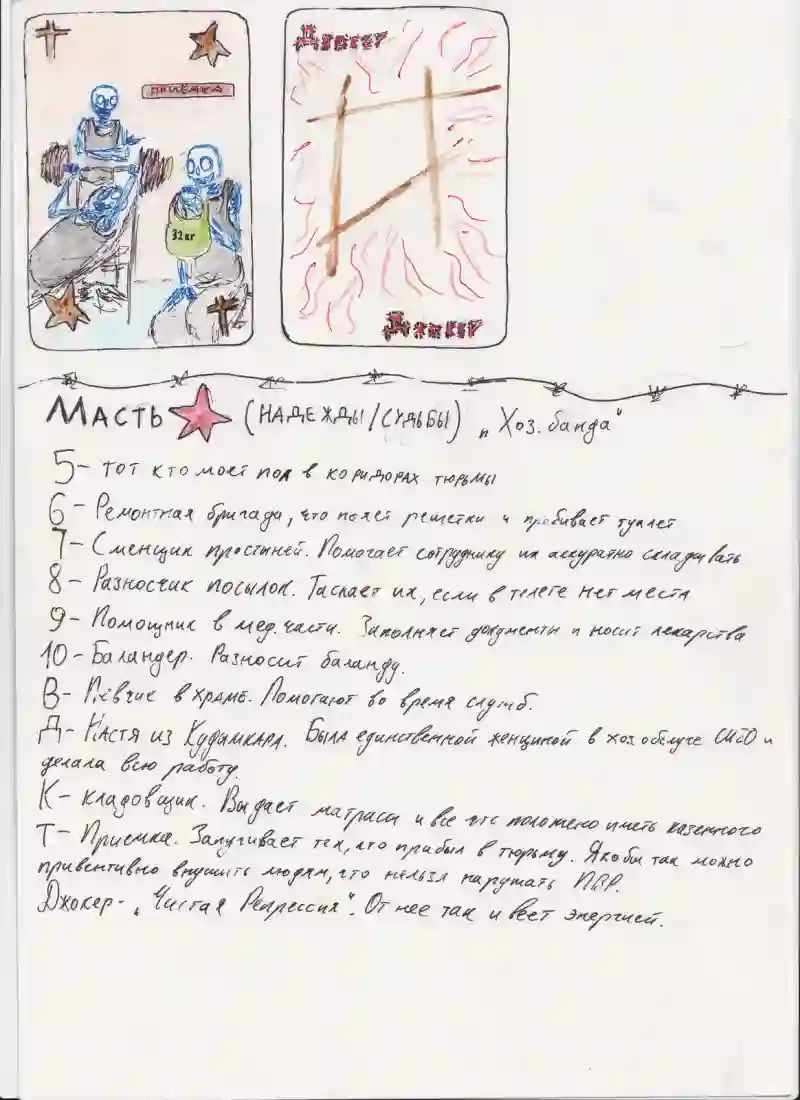 Т
ПРИЁМКА
32кг
Т
Джокер
Джокер
МАСТЬ (НАДЕЖДЫ/СУДЬБЫ) „Хоз.банда"
5- тот кто моет пол в коридорах тюрьмы
6- Ремонтная бригада, что паяет решетки и пробивает туалет
7- Сменщик простыней. Помогает сотруднику их аккуратно складывать
8- Разносчик посылок. Таскает их, если в телеге нет места
9- Помощник в мед.части. Заполняет документы и носит лекарства
10- Баландер. Разносит баланду.
В- Певчие в храме. Помогают во время служб.
Д- Настя из Кудымкара. Была единственной женщиной в хоз обслуге СИЗО и
делала всю работу.
К- кладовщик. Выдает матрасы и все что положено иметь казенного
Т- Приемка. Запугивает тех, кто прибыл в тюрьму. Якобы так можно
привентивно внушить людям, что нельзя нарушать ПВР.
Джокер- „Чистая Репрессия". От нее так и веет энергией.